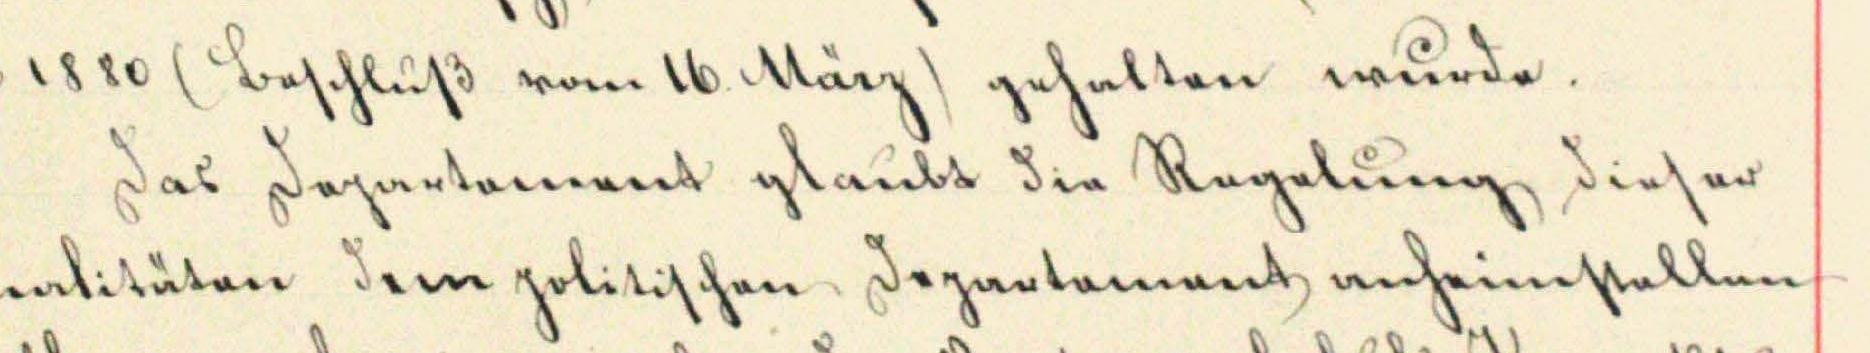 1880 (Beschluß vom 16. März) gehalten wurde.
Das Departement glaubt die Regelung dieser
nalitäten dem politischen Departement anheimstellen